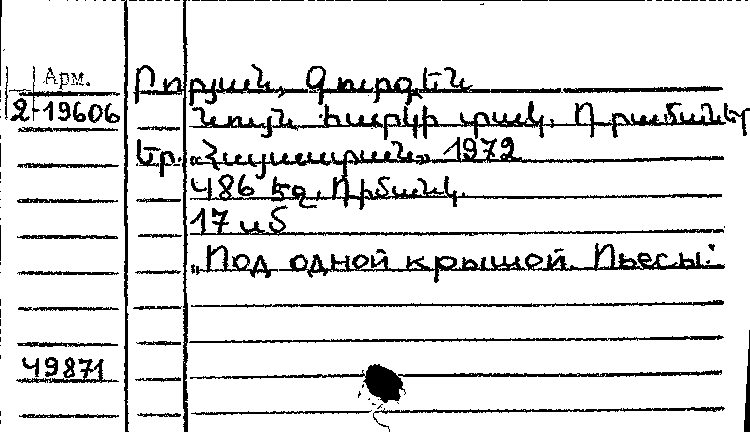 Арм.
Բորյան, Գուրգեն
2-19606 Նույն հարկի տակ. Դրամաներ
Եր. «Հայաստան» 1972
486 էջ, դիմանկ.
17 սմ
„Под одной крышой. Пьесы"
49871